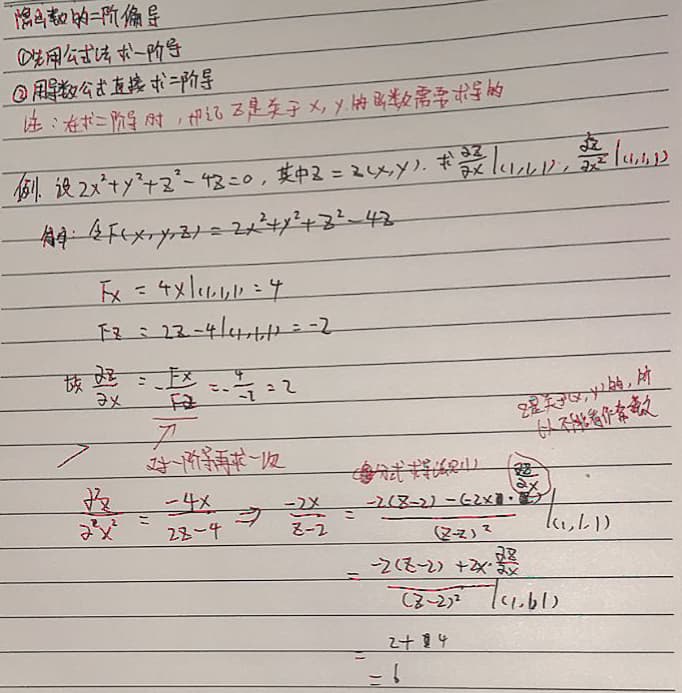 隐函数的二阶偏导
①先用公式法求一阶导
②用导数公式直接求二阶导
注：在求二阶导时，切记 Z是关于 x, y 的函数需要求导的
例. 设 2x²+y²+z²-4z=0, 其中z=z(x,y). 求 ∂z/∂x |(1,1,1), ∂²z/∂x² |(1,1,1)
解: 令F(x,y,z) = 2x²+y²+z²-4z
Fx = 4x|(1,1,1) = 4
Fz = 2z-4|(1,1,1) = -2
故 ∂z/∂x = -Fx/Fz = -4/-2 = 2
z是关于(x,y)的,所
以不能看作常数
对一阶导再求一次
(分式求导法则)
∂z/∂x
∂²z/∂²x² = -4x/2z-4 ⇒ -2x/z-2 = -2(z-2)-(-2x·)/(z-2)² |(1,1,1)
= -2(z-2)+2x·∂z/∂x/(z-2)² |(1,1,1)
= 2+4
= 6